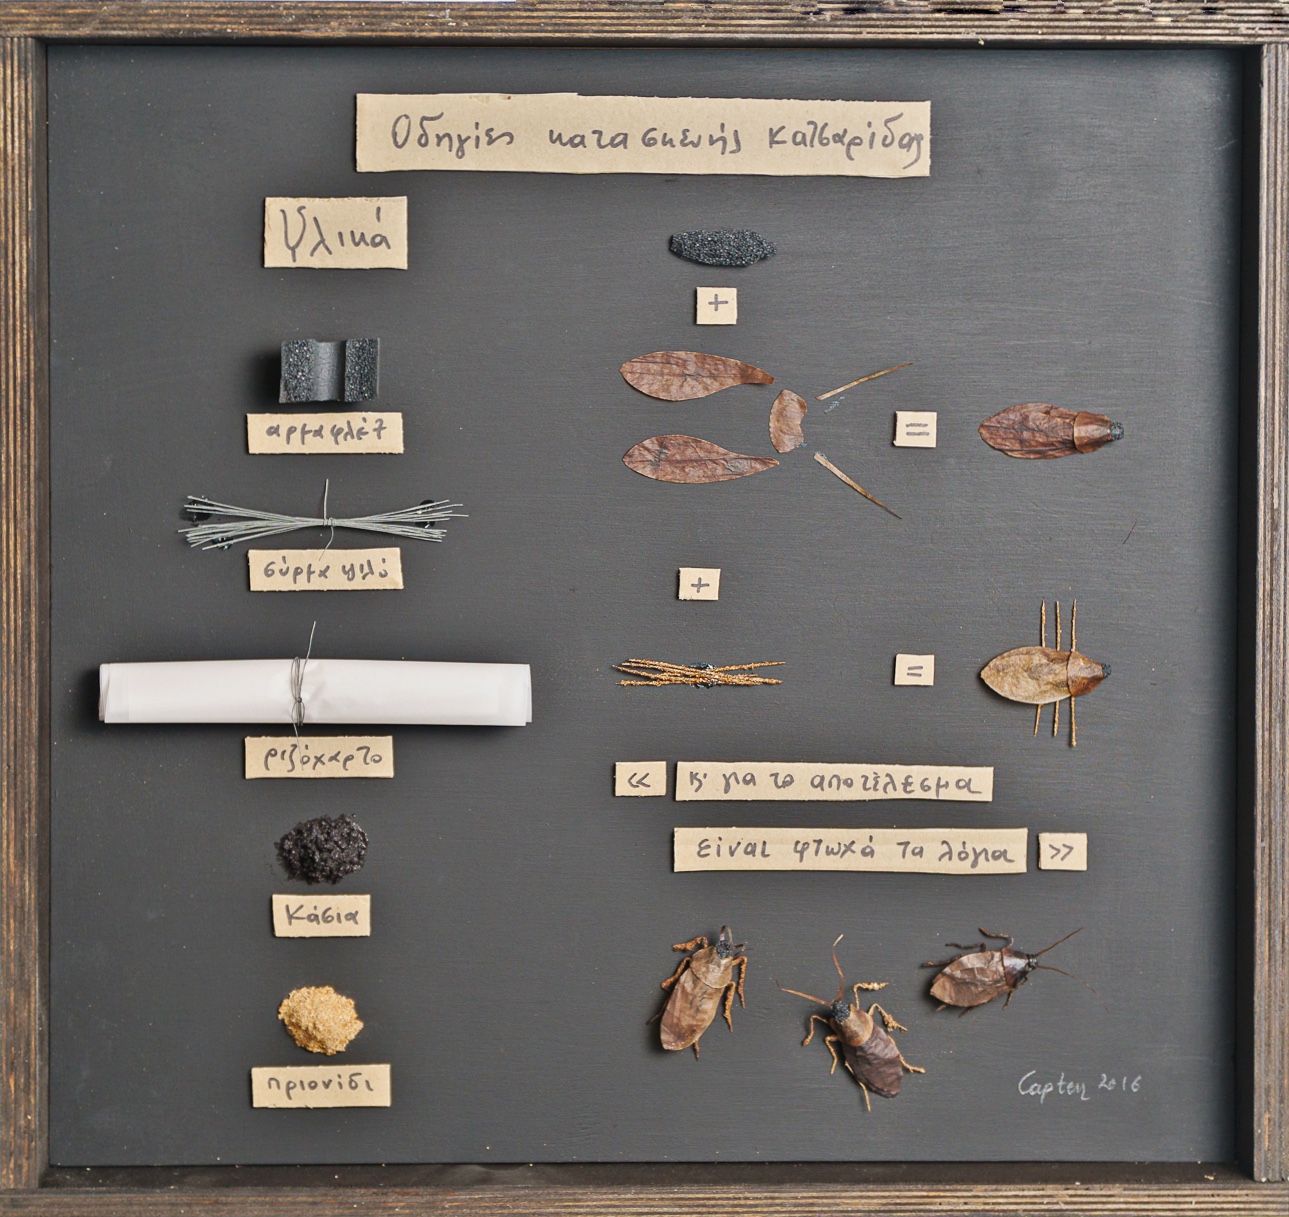 Οδηγίες κατασκευής κατσαρίδας
Υλικά
αρμαφλέξ
σύρμα ψιλό
ριζόχαρτο
Κάσια
πριονίδι
+
=
+
=
<< κ' για το αποτέλεσμα
είναι φτωχά τα λόγια >>
Capten 2016